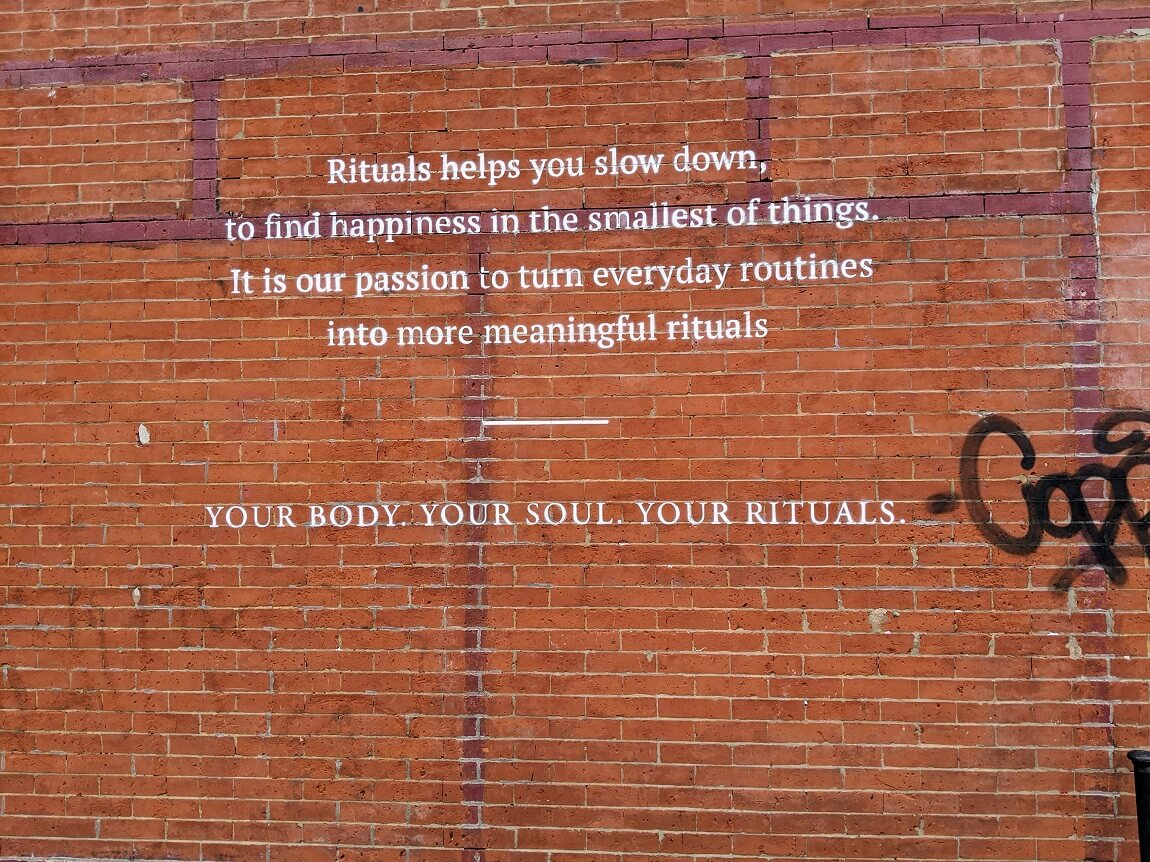 Rituals helps you slow down,
to find happiness in the smallest of things.
It is our passion to turn everyday routines
into more meaningful rituals
YOUR BODY. YOUR SOUL. YOUR RITUALS.